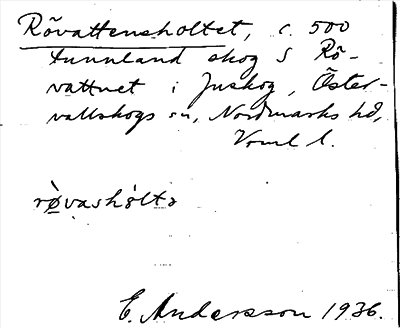 Rövattensholtet, c. 500
tunnland skog S Rö-
vattnet i Juskog, Öster-
vallskogs sn, Nordmarks hd,
Vrml l.
rø̀vashɔ́ltə
E. Andersson 1936.